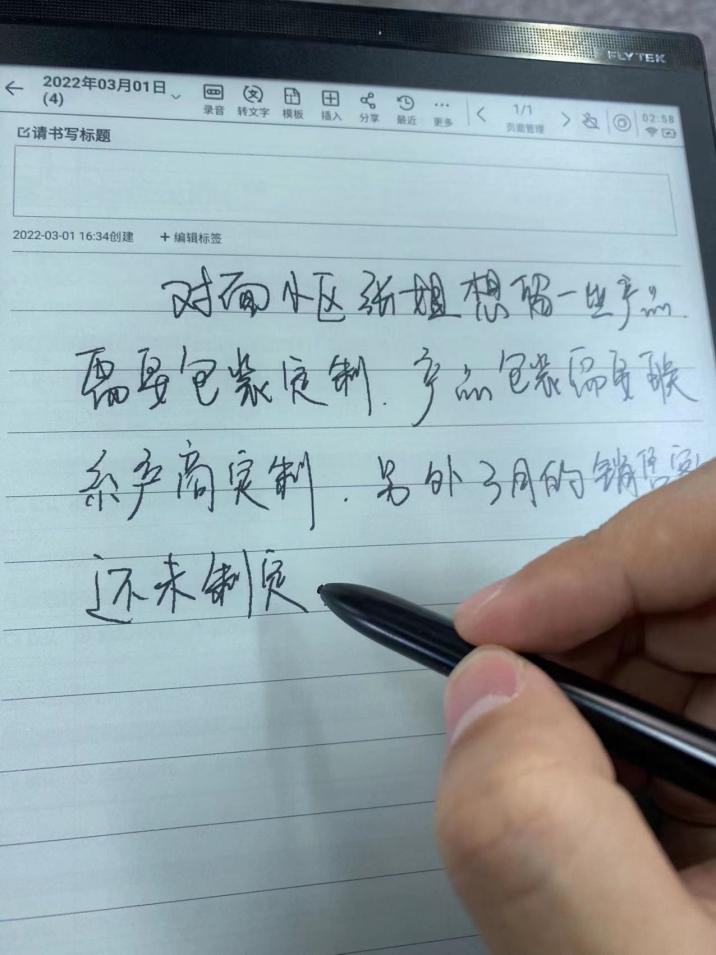 FLYTEK
2022年03月01日
(4)
录音 转文字 模板 插入 分享 最近 更多
1/1
页面管理
02:58
请书写标题
2022-03-01 16:34创建 + 编辑标签
对面小区张姐想留一些产品
需要包装定制.产品包装需要联
系产商定制.另外3月的销售
还未制定